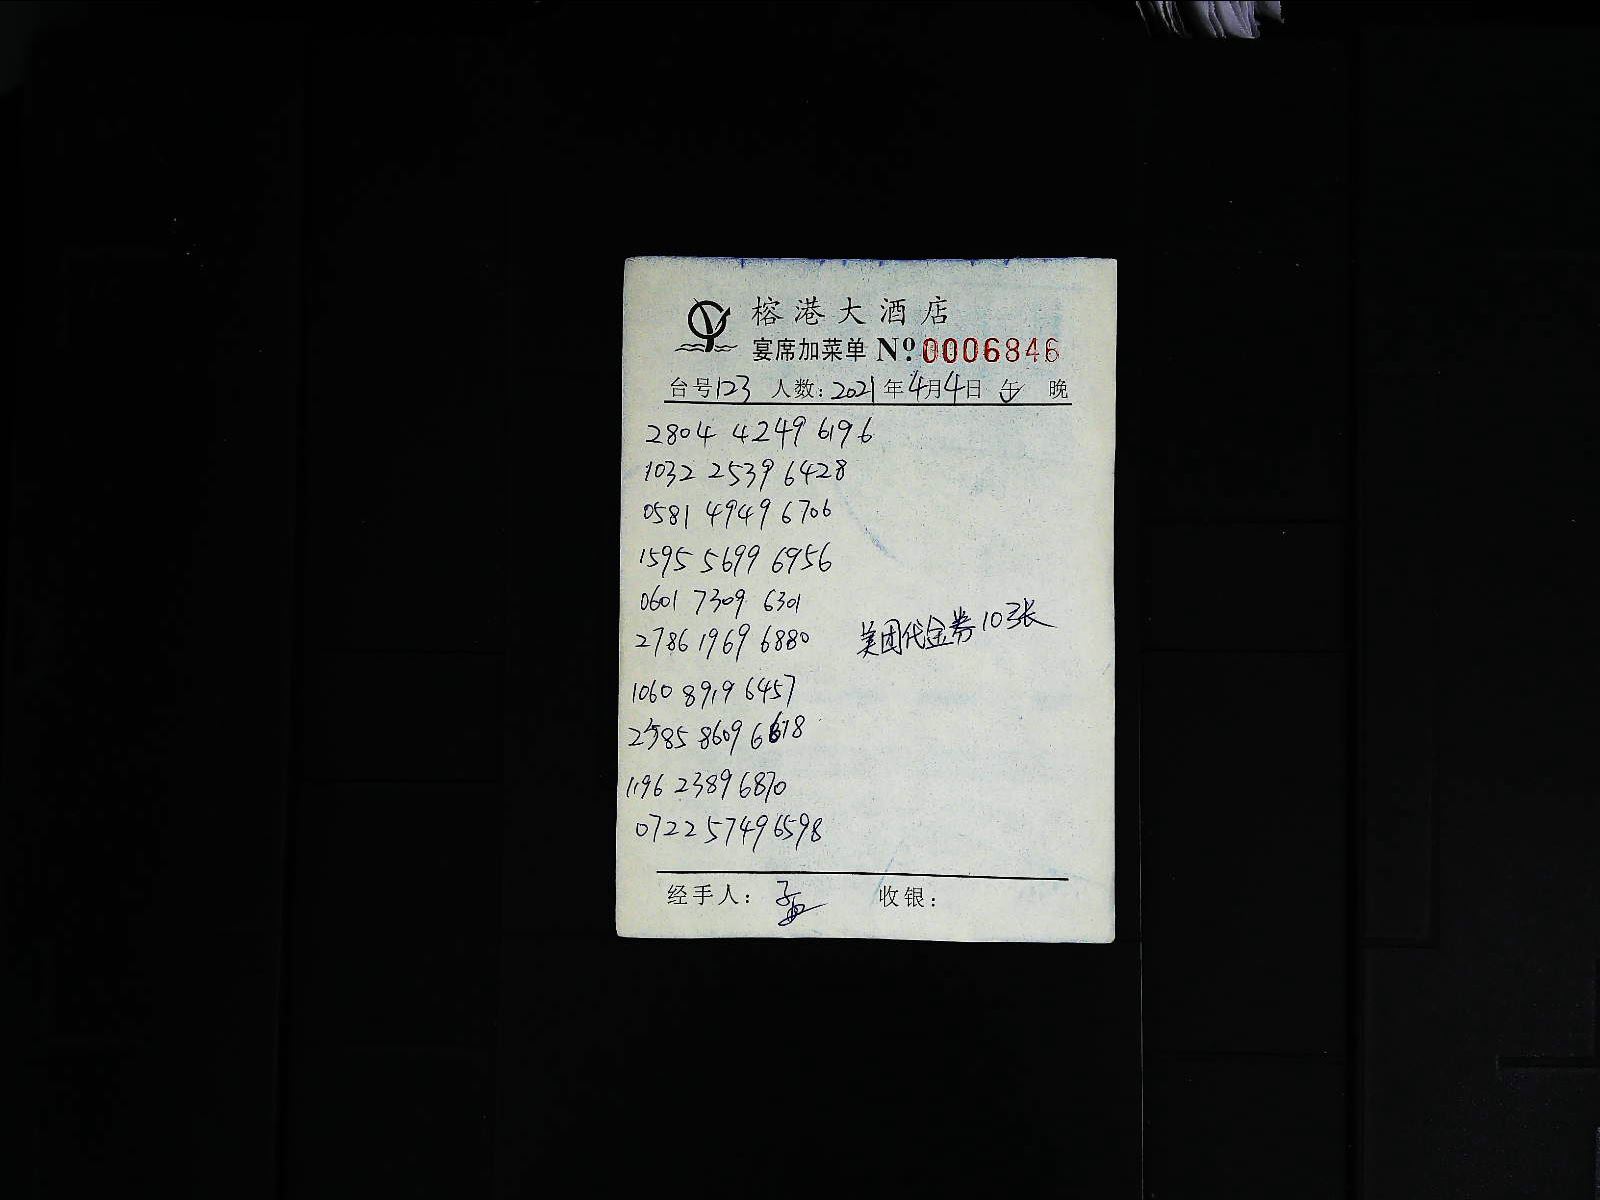 榕港大酒店
宴席加菜单 Nº 0006846
台号123 人数: 2021年4月4日 午 晚
2804 4249 6196
1032 2539 6428
0581 4949 6706
1595 5699 6956
0601 7309 6301
2786 1969 6880
美团代金券10张
1060 8919 6457
2585 8609 6618
1196 2389 6870
0722 5749 6598
经手人: 孟 收银: